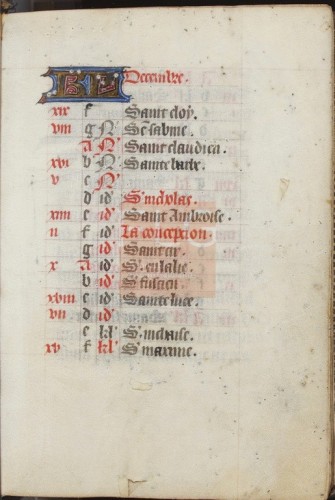 kl Decembre.
xix f Saint eloy.
viii g N' Se sabine.
A N' Saint claudien.
xvi b N' Sainte barbe.
v c N'
d id' S. nicholas.
xiii e id' Saint Ambroise.
ii f id' La conception
g id' Saint cir.
x A id' S. eulalie.
b id' S. fuscien.
xviii c id' Sainte luce.
vii d id'
e kl' S. nichaise.
xv f kl' S. maxime.